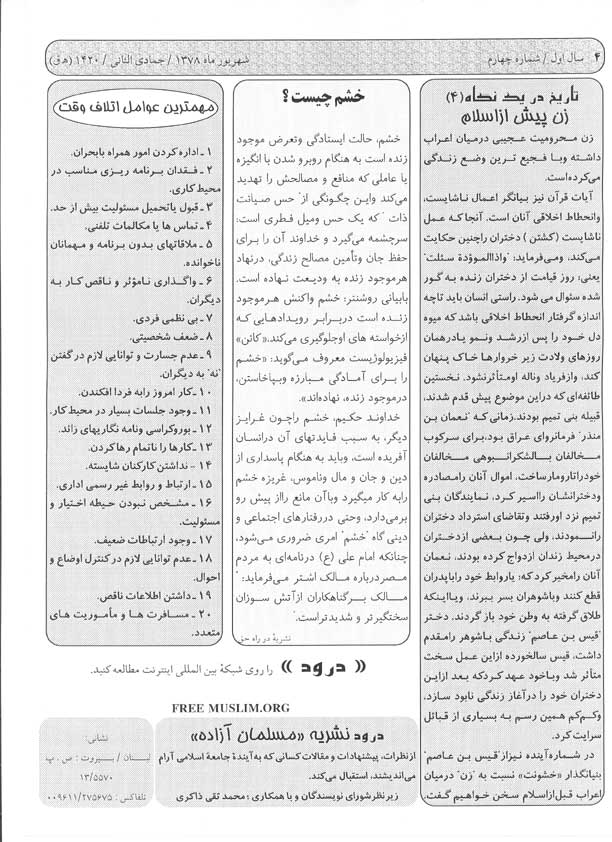 ۴ سال اول / شماره چهارم
شهریور ماه ۱۳۷۸ / جمادی الثانی / ۱۴۲۰ (ه.ق)
تاریخ در یک نگاه (۴)
زن پیش از اسلام
زن محرومیت عجیبی درمیان اعراب
داشته وبا فجیع ترین وضع زندگی
می‌کرده‌است.
آیات قرآن نیز بیانگر اعمال ناشایست،
وانحطاط اخلاقی آنان است. آنجاکه عمل
ناشایست (کشتن) دختران راچنین حکایت
می‌کند، ومی‌فرماید: "واذاالموؤدة سئلت"
یعنی: روز قیامت از دختران زنده به گور
شده سئوال می شود. راستی انسان باید تاچه
اندازه گرفتار انحطاط اخلاقی باشد که میوه
دل خود را پس ازرشد ونمو یادرهمان
روزهای ولادت زیر خروارها خاک پنهان
کند، وازفریاد وناله اومتأثرنشود. نخستین
طائفه‌ای که دراین موضوع پیش قدم شدند،
قبیله بنی تمیم بودند.زمانی که "نعمان بن
منذر" فرمانروای عراق بود،برای سرکوب
مخالفان بالشکرانبوهی مخالفان
خودراتارومارساخت، اموال آنان رامصادره
ودخترانشان رااسیر کرد، نمایندگان بنی
تمیم نزد اورفتند وتقاضای استرداد دختران
رانمودند، ولی چون بعضی ازدختران
درمحیط زندان ازدواج کرده بودند، نعمان
آنان رامخیر کردکه: یاروابط خود راباپدران
قطع کنند وباشوهران بسر ببرند، ویااینکه
طلاق گرفته به وطن خود باز گردند. دختر
"قیس بن عاصم" زندگی باشوهر رامقدم
داشت، قیس سالخورده ازاین عمل سخت
متأثر شد وباخود عهدکردکه بعد ازاین
دختران خود را درآغاز زندگی نابود سازد،
وکم‌کم همین رسم به بسیاری از قبائل
سرایت کرد.
در شماره‌آینده نیزاز"قیس بن عاصم"
بنیانگذار «خشونت» نسبت به "زن" درمیان
اعراب قبل‌ازاسلام سخن خواهیم گفت.
خشم چیست؟
خشم، حالت ایستادگی وتعرض موجود
زنده است به هنگام روبرو شدن با انگیزه
یا عاملی که منافع و مصالحش را تهدید
می‌کند واین چگونگی از "حس صیانت
ذات" که یک حس ومیل فطری است؛
سرچشمه می‌گیرد و خداوند آن را برای
حفظ جان وتأمین مصالح زندگی، درنهاد
هرموجود زنده به ودیعت نهاده است.
بابیانی روشنتر: خشم واکنش هرموجود
زنده است دربرابر رویدادهایی که
ازخواسته های اوجلوگیری می‌کند.«کانن»
فیزیولوژیست معروف می‌گوید: «خشم
را برای آمادگی مبارزه وبپاخاستن،
درموجود زنده، نهاده‌اند».
خداوند حکیم، خشم راچون غرایز
دیگر، به سبب فایدتهای آن درانسان
آفریده است، وباید به هنگام پاسداری از
دین و جان و مال وناموس، غریزه خشم
رابه کار میگیرد وباآن مانع رااز پیش رو
برمی‌دارد، وحتی دررفتارهای اجتماعی و
دینی گاه "خشم" امری ضروری می‌شود،
چنانکه امام علی (ع) درنامه‌ای به مردم
مصردرباره مالک اشتر می‌فرماید:"
مالک برگناهکاران ازآتش سوزان
سختگیرتر و شدیدتراست."
نشریۀ در راه حق
مهمترین عوامل اتلاف وقت
۱ ـ اداره کردن امور همراه بابحران.
۲ ـ فقدان برنامه ریزی مناسب در
محیط کاری.
۳ ـ قبول یاتحمیل مسئولیت بیش از حد.
۴ ـ تماس ها یا مکالمات تلفنی.
۵ ـ ملاقاتهای بدون برنامه و مهمانان
ناخوانده.
۶ ـ واگذاری نامؤثر و ناقص کار به
دیگران.
۷ ـ بی نظمی فردی.
۸ ـ ضعف شخصیتی.
۹ ـ عدم جسارت و توانایی لازم در گفتن
"نه" به دیگران.
۱۰ ـ کار امروز رابه فردا افکندن.
۱۱ ـ وجود جلسات بسیار در محیط کار.
۱۲ ـ بوروکراسی ونامه نگاریهای زائد.
۱۳ ـ کارها راناتمام رهاکردن.
۱۴ ـ نداشتن کارکنان شایسته.
۱۵ ـ ارتباط و روابط غیر رسمی اداری.
۱۶ ـ مشخص نبودن حیطه اختیار و
مسئولیت.
۱۷ ـ وجود ارتباطات ضعیف.
۱۸ ـ عدم توانایی لازم در کنترل اوضاع و
احوال.
۱۹ ـ داشتن اطلاعات ناقص.
۲۰ ـ مسافرت ها و مأموریت های
متعدد.
« درود » را روی شبکۀ بین المللی اینترنت مطالعه کنید.
FREE MUSLIM.ORG
درود نشریه «مسلمان آزاده»
ازنظرات، پیشنهادات و مقالات کسانی که به‌آیندۀ جامعۀ اسلامی آرام
می‌اندیشند، استقبال می‌کند.
زیر نظرشورای نویسندگان و با همکاری : محمد تقی ذاکری
نشانی:
لبنان / بیروت : ص . پ
۱۳/۵۵۷۰
تلفاکس : ۰۰۹۶۱۱/۲۷۵۶۷۵